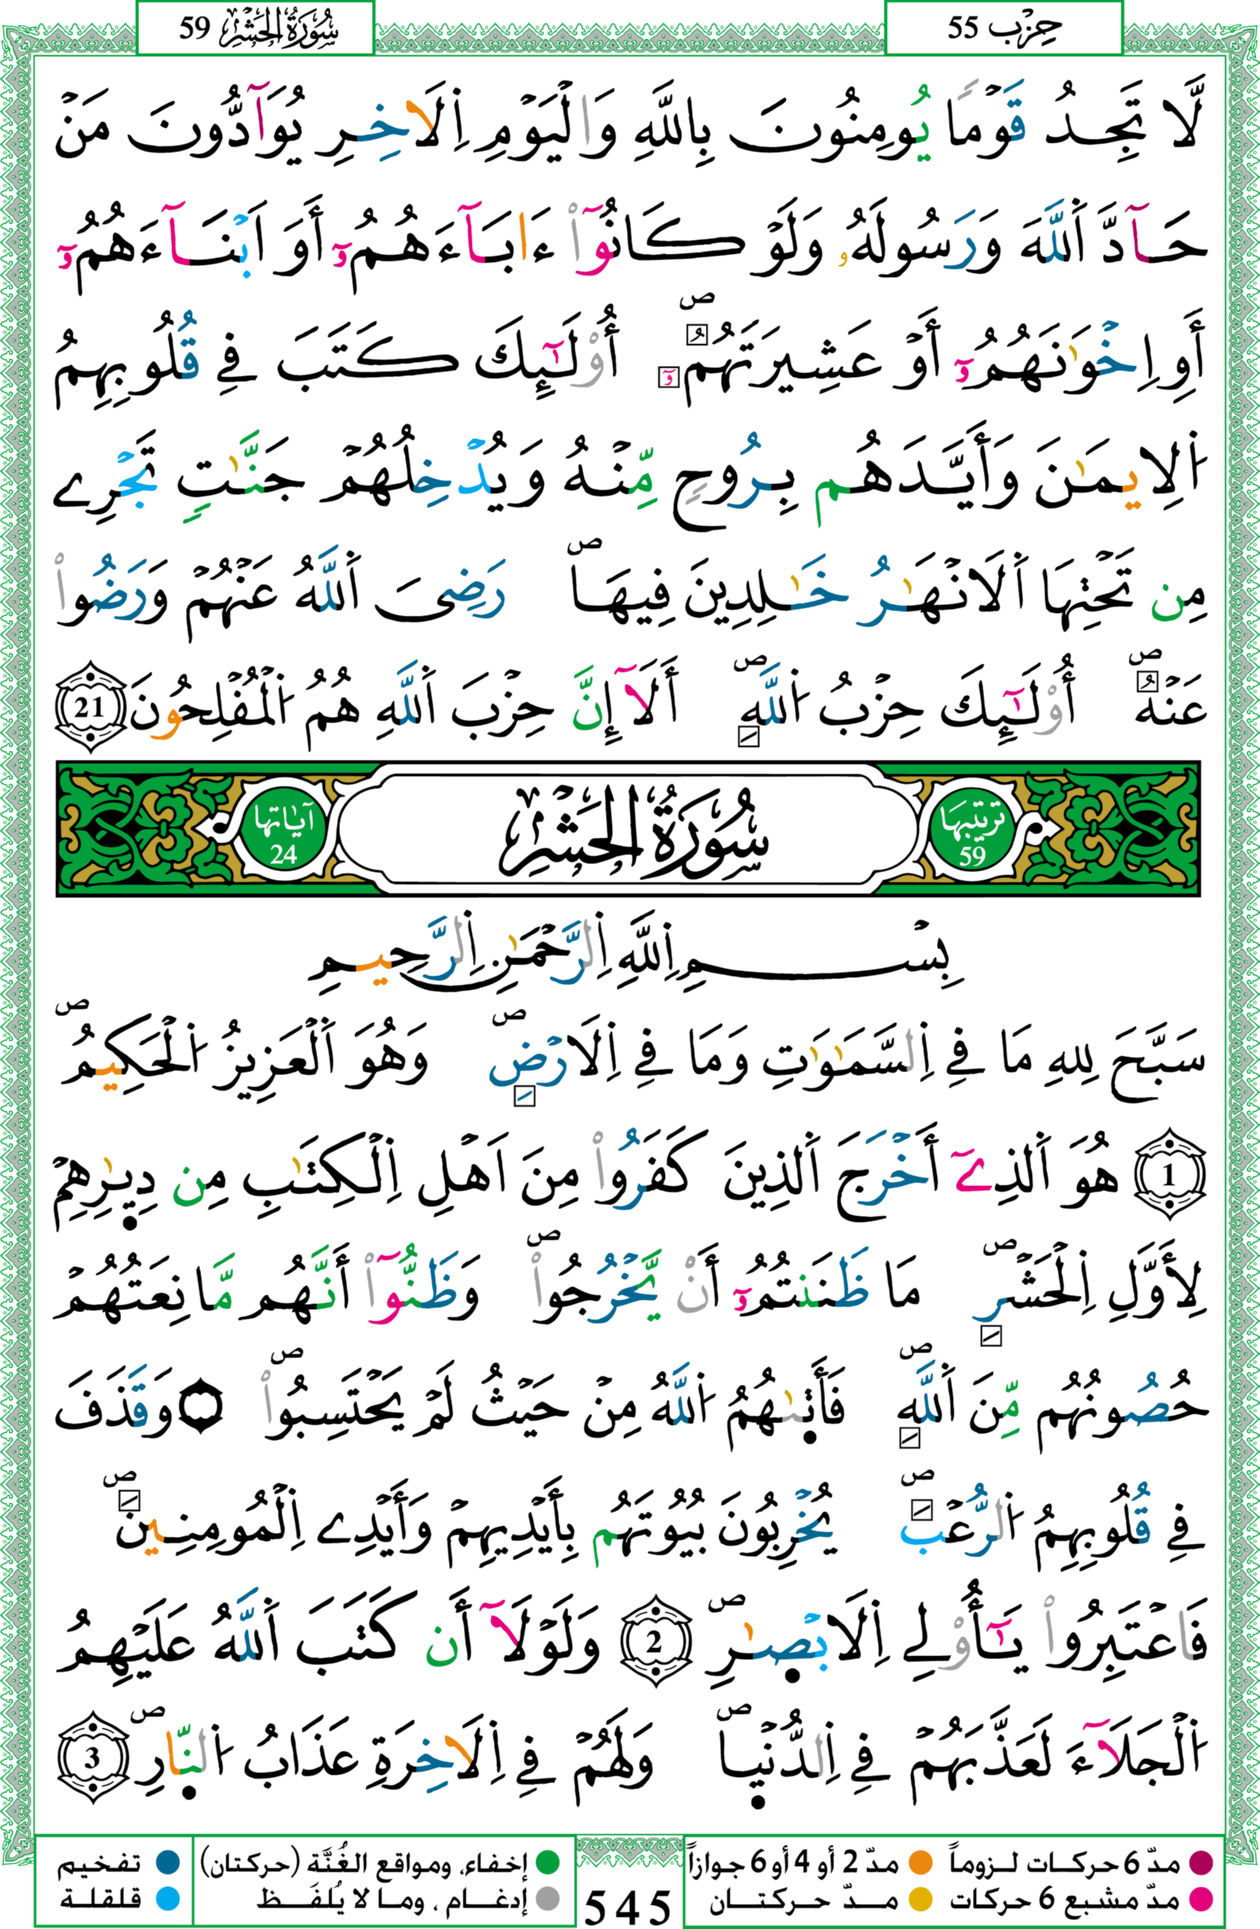 حِزْب 55
سُورَةُ الْحَشْرِ 59
لَّا تَجِدُ قَوْمًا يُومِنُونَ بِاللَّهِ وَالْيَوْمِ اِلَاخِرِ يُوَآدُّونَ مَنْ
حَآدَّ اَللَّهَ وَرَسُولَهُۥ وَلَوْ كَانُوٓاْ ءَابَآءَهُمُۥٓ أَوَ اَبْنَآءَهُمُۥٓ
أَوِ اِخْوَٰنَهُمُۥٓ أَوْ عَشِيرَتَهُمُۥٓ ۖ أُوْلَٰٓئِكَ كَتَبَ فِي قُلُوبِهِمُ
اُلِايمَٰنَ وَأَيَّدَهُم بِرُوحٍ مِّنْهُ وَيُدْخِلُهُمْ جَنَّٰتٍ تَجْرِے
مِن تَحْتِهَا اَلَانْهَٰرُ خَٰلِدِينَ فِيهَا ۖ رَضِىَ اَللَّهُ عَنْهُمْ وَرَضُواْ
عَنْهُ ۖ أُوْلَٰٓئِكَ حِزْبُ اُللَّهِ ۖ أَلَآ إِنَّ حِزْبَ اَللَّهِ هُمُ اُلْمُفْلِحُونَ 21
ترتيبها 59 سُورَةُ الْحَشْرِ آياتها 24
بِسْمِ اِللَّهِ اِلرَّحْمَٰنِ اِلرَّحِيمِ
سَبَّحَ لِلهِ مَا فِي اِلسَّمَٰوَٰتِ وَمَا فِي اِلَارْضِ ۖ وَهُوَ اَلْعَزِيزُ اُلْحَكِيمُ ۖ
1 هُوَ اَلذِےٓ أَخْرَجَ اَلذِينَ كَفَرُواْ مِنَ اَهْلِ اِلْكِتَٰبِ مِن دِيٰرِهِمْ
لِأَوَّلِ اِلْحَشْرِ ۖ مَا ظَنَنتُمُۥٓ أَنْ يَّخْرُجُواْ ۖ وَظَنُّوٓاْ أَنَّهُم مَّانِعَتُهُمْ
حُصُونُهُم مِّنَ اَللَّهِ ۖ فَأَتٰىٰهُمُ اُللَّهُ مِنْ حَيْثُ لَمْ يَحْتَسِبُواْ ۖ وَقَذَفَ
فِي قُلُوبِهِمُ اُلرُّعْبَ ۖ يُخْرِبُونَ بُيُوتَهُم بِأَيْدِيهِمْ وَأَيْدِے اِلْمُومِنِينَ ۖ
فَاعْتَبِرُواْ يَٰٓأُوْلِے اِلَابْصٰرِ ۖ 2 وَلَوْلَآ أَن كَتَبَ اَللَّهُ عَلَيْهِمُ
اُلْجَلَآءَ لَعَذَّبَهُمْ فِي اِلدُّنْيٰا ۖ وَلَهُمْ فِي اِلَاخِرَةِ عَذَابُ اُلنّٰارِ ۖ 3
مدّ 6 حركات لـزوماً مدّ 2 أو 4 أو 6 جوازاً إخفاء، ومواقع الغُنَّة (حركتان) تفخيم
مدّ مشبع 6 حركات مـدّ حركتـان 545 إدغام ، وما لا يُلفَظ قلقلة